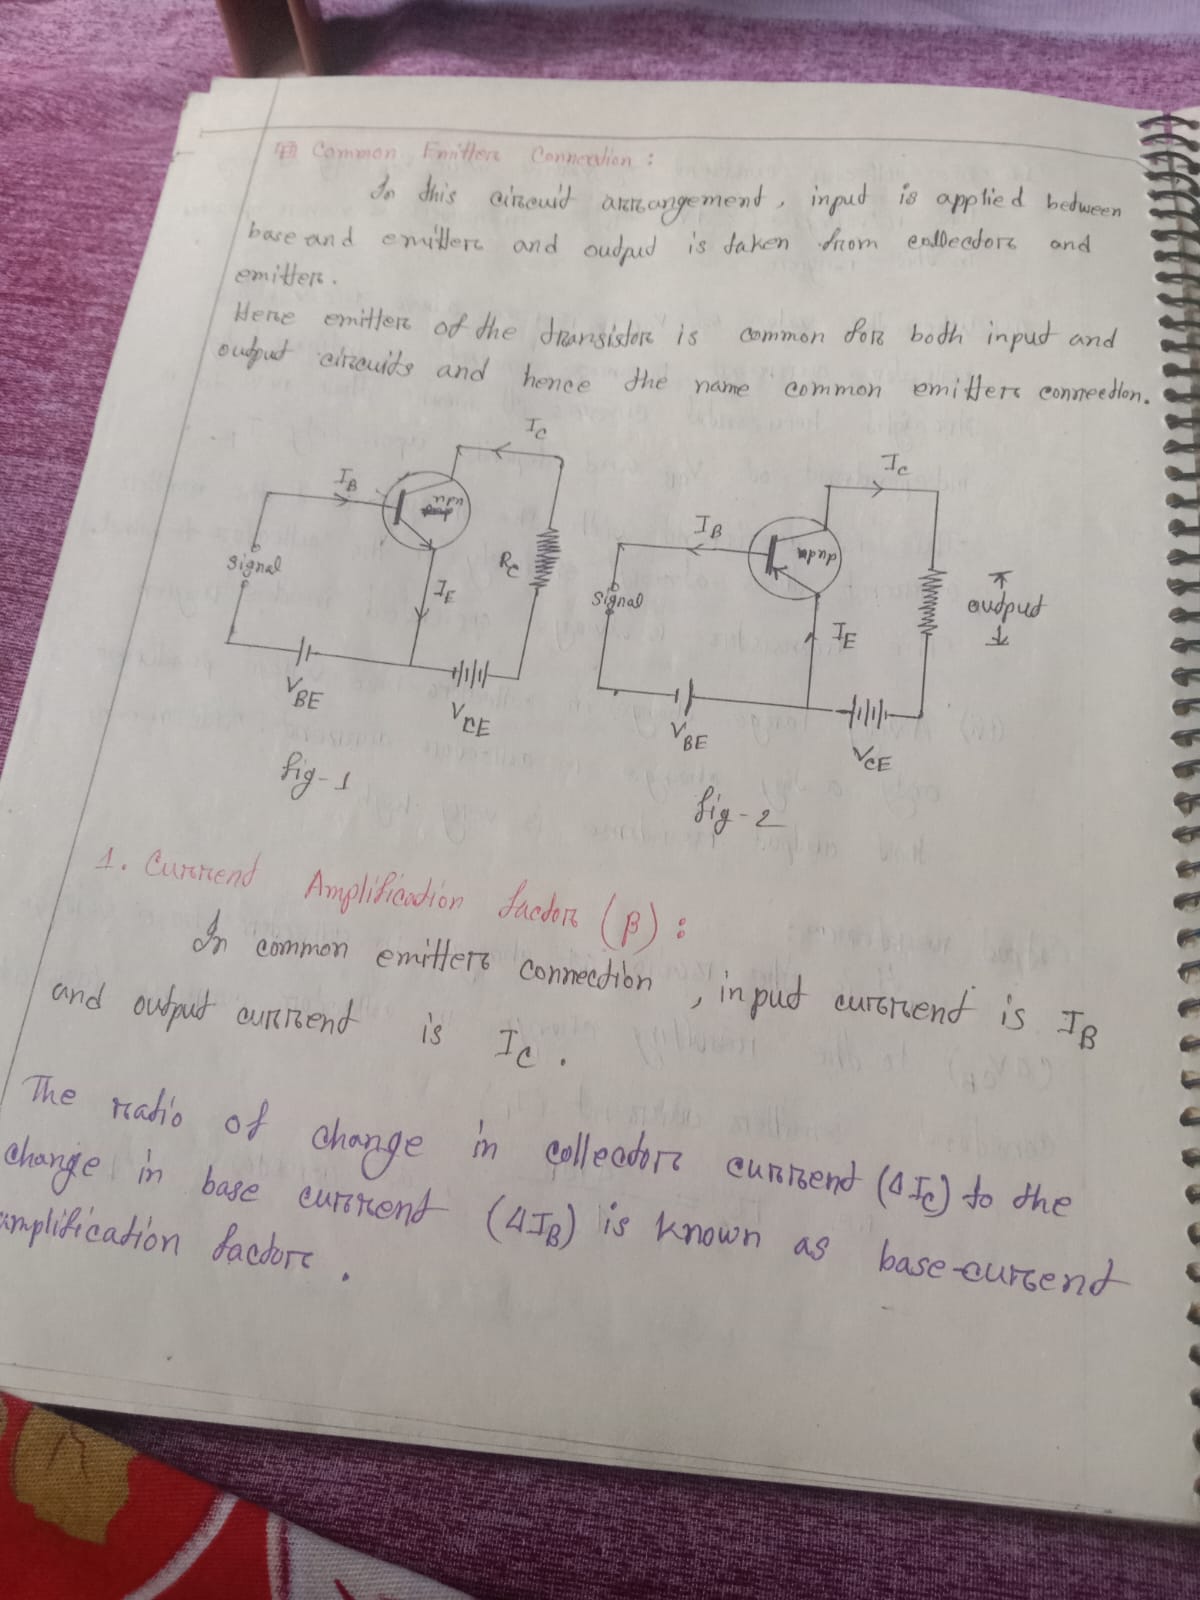 Common Emitter Connection :
In this circuit arrangement, input is applied between
base and emitter and output is taken from collector and
emitter.
Here emitter of the transistor is common for both input and
output circuits and hence the name common emitter connection.
IC
IC
IB
IB
npn
pnp
Signal
RC
Signal
output
IE
IE
VBE
VCE
VBE
VCE
fig-1
fig-2
1. Current Amplification factor (β) :
In common emitter connection, input current is IB
and output current is IC.
The ratio of change in collector current (ΔIC) to the
change in base current (ΔIB) is known as base-current
amplification factor.